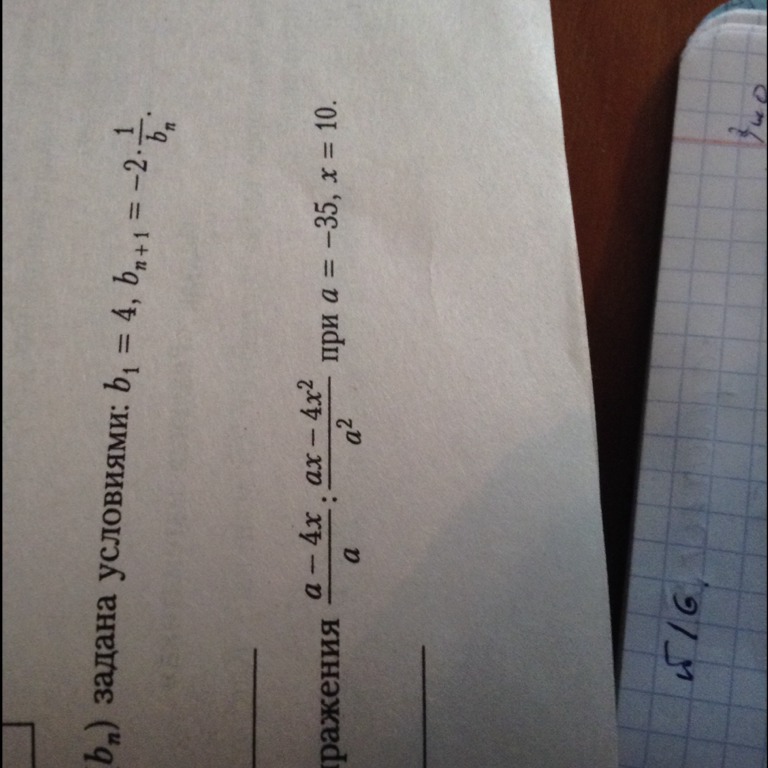 bₙ) задана условиями: b₁ = 4, bₙ₊₁ = −2·1/bₙ.
ражения (a − 4x)/a : (ax − 4x²)/a² при a = −35, x = 10.